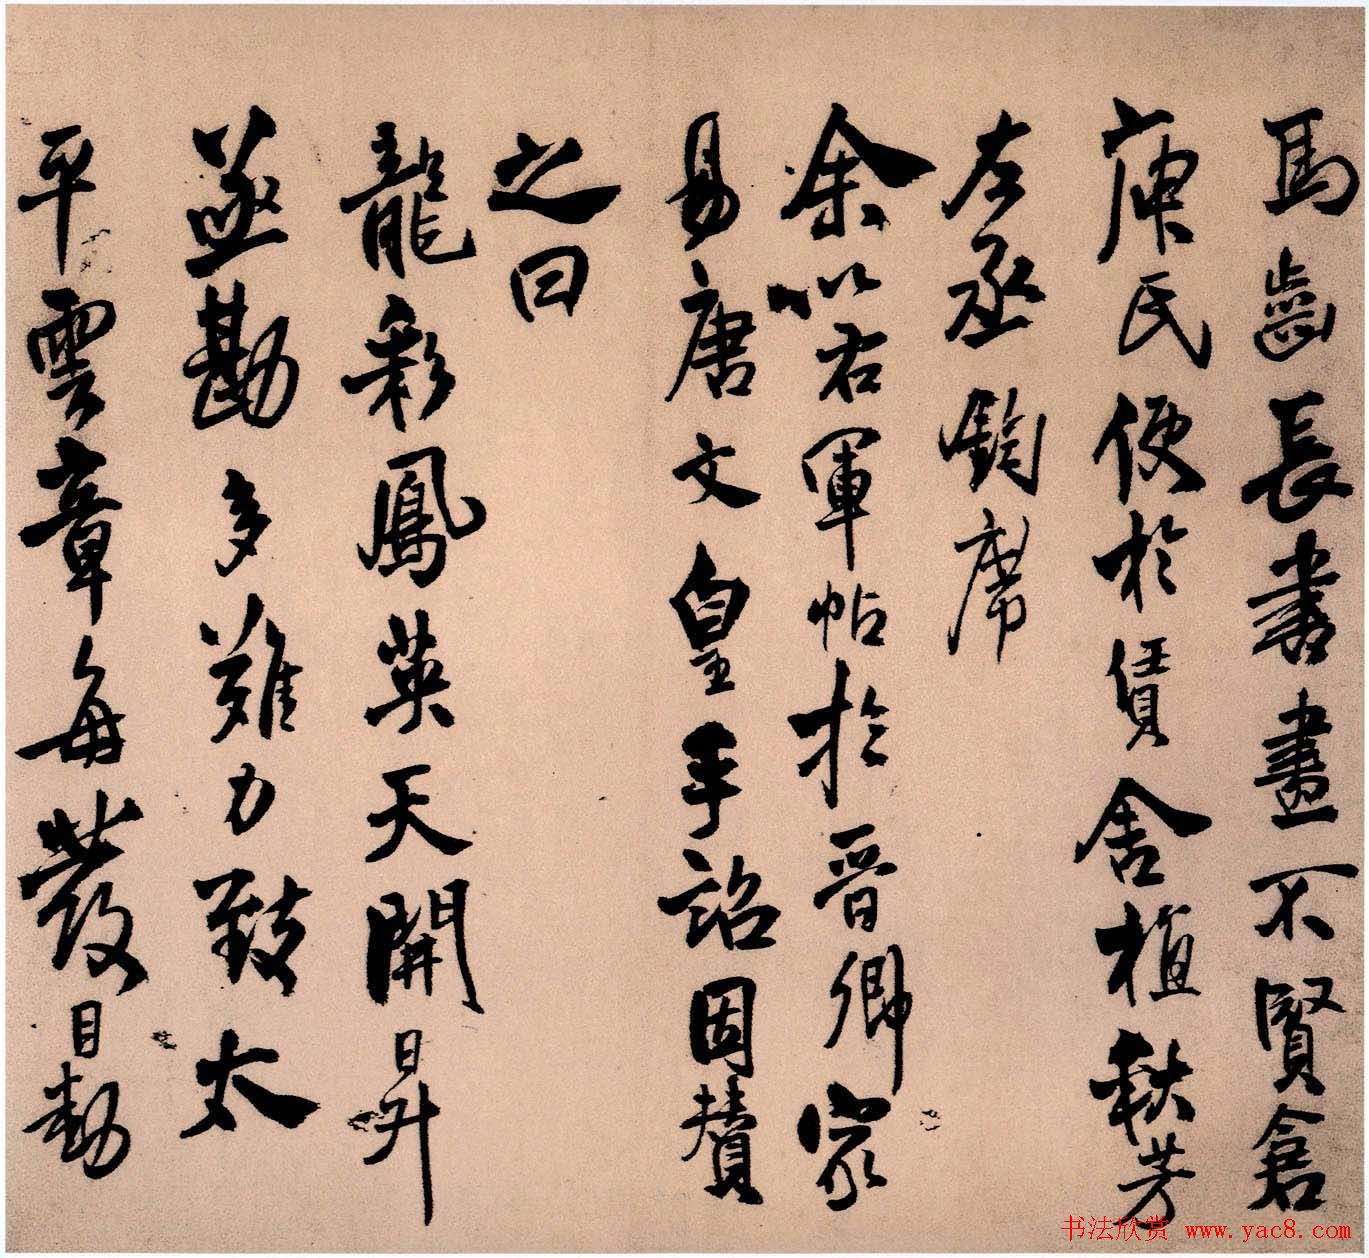 馬齒長書畫不賢倉
庾氏便於賃舍植秋芳
左丞鈞席
余以右軍帖於晉卿家
易唐文皇手詔因贊
之曰
龍彩鳳英天開日昇
亟戡多難力致太
平雲章每發目動
书法欣赏 www.yac8.com